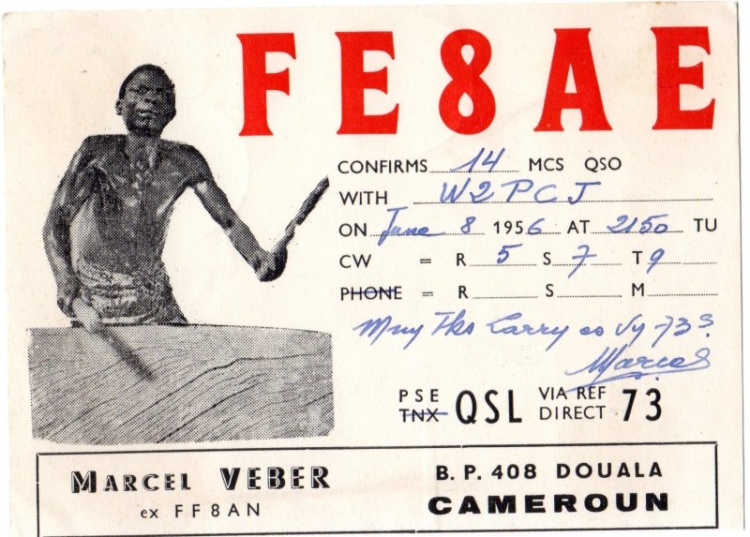 FE8AE
CONFIRMS 14 MCS QSO
WITH W2PCJ
ON June 8 1956 AT 2150 TU
CW = R 5 S 7 T 9
PHONE = R S M
Mny Tks Larry es Vy 73s.
Marcel
PSE TNX QSL VIA REF DIRECT 73
MARCEL VEBER
ex FF8AN
B.P. 408 DOUALA
CAMEROUN